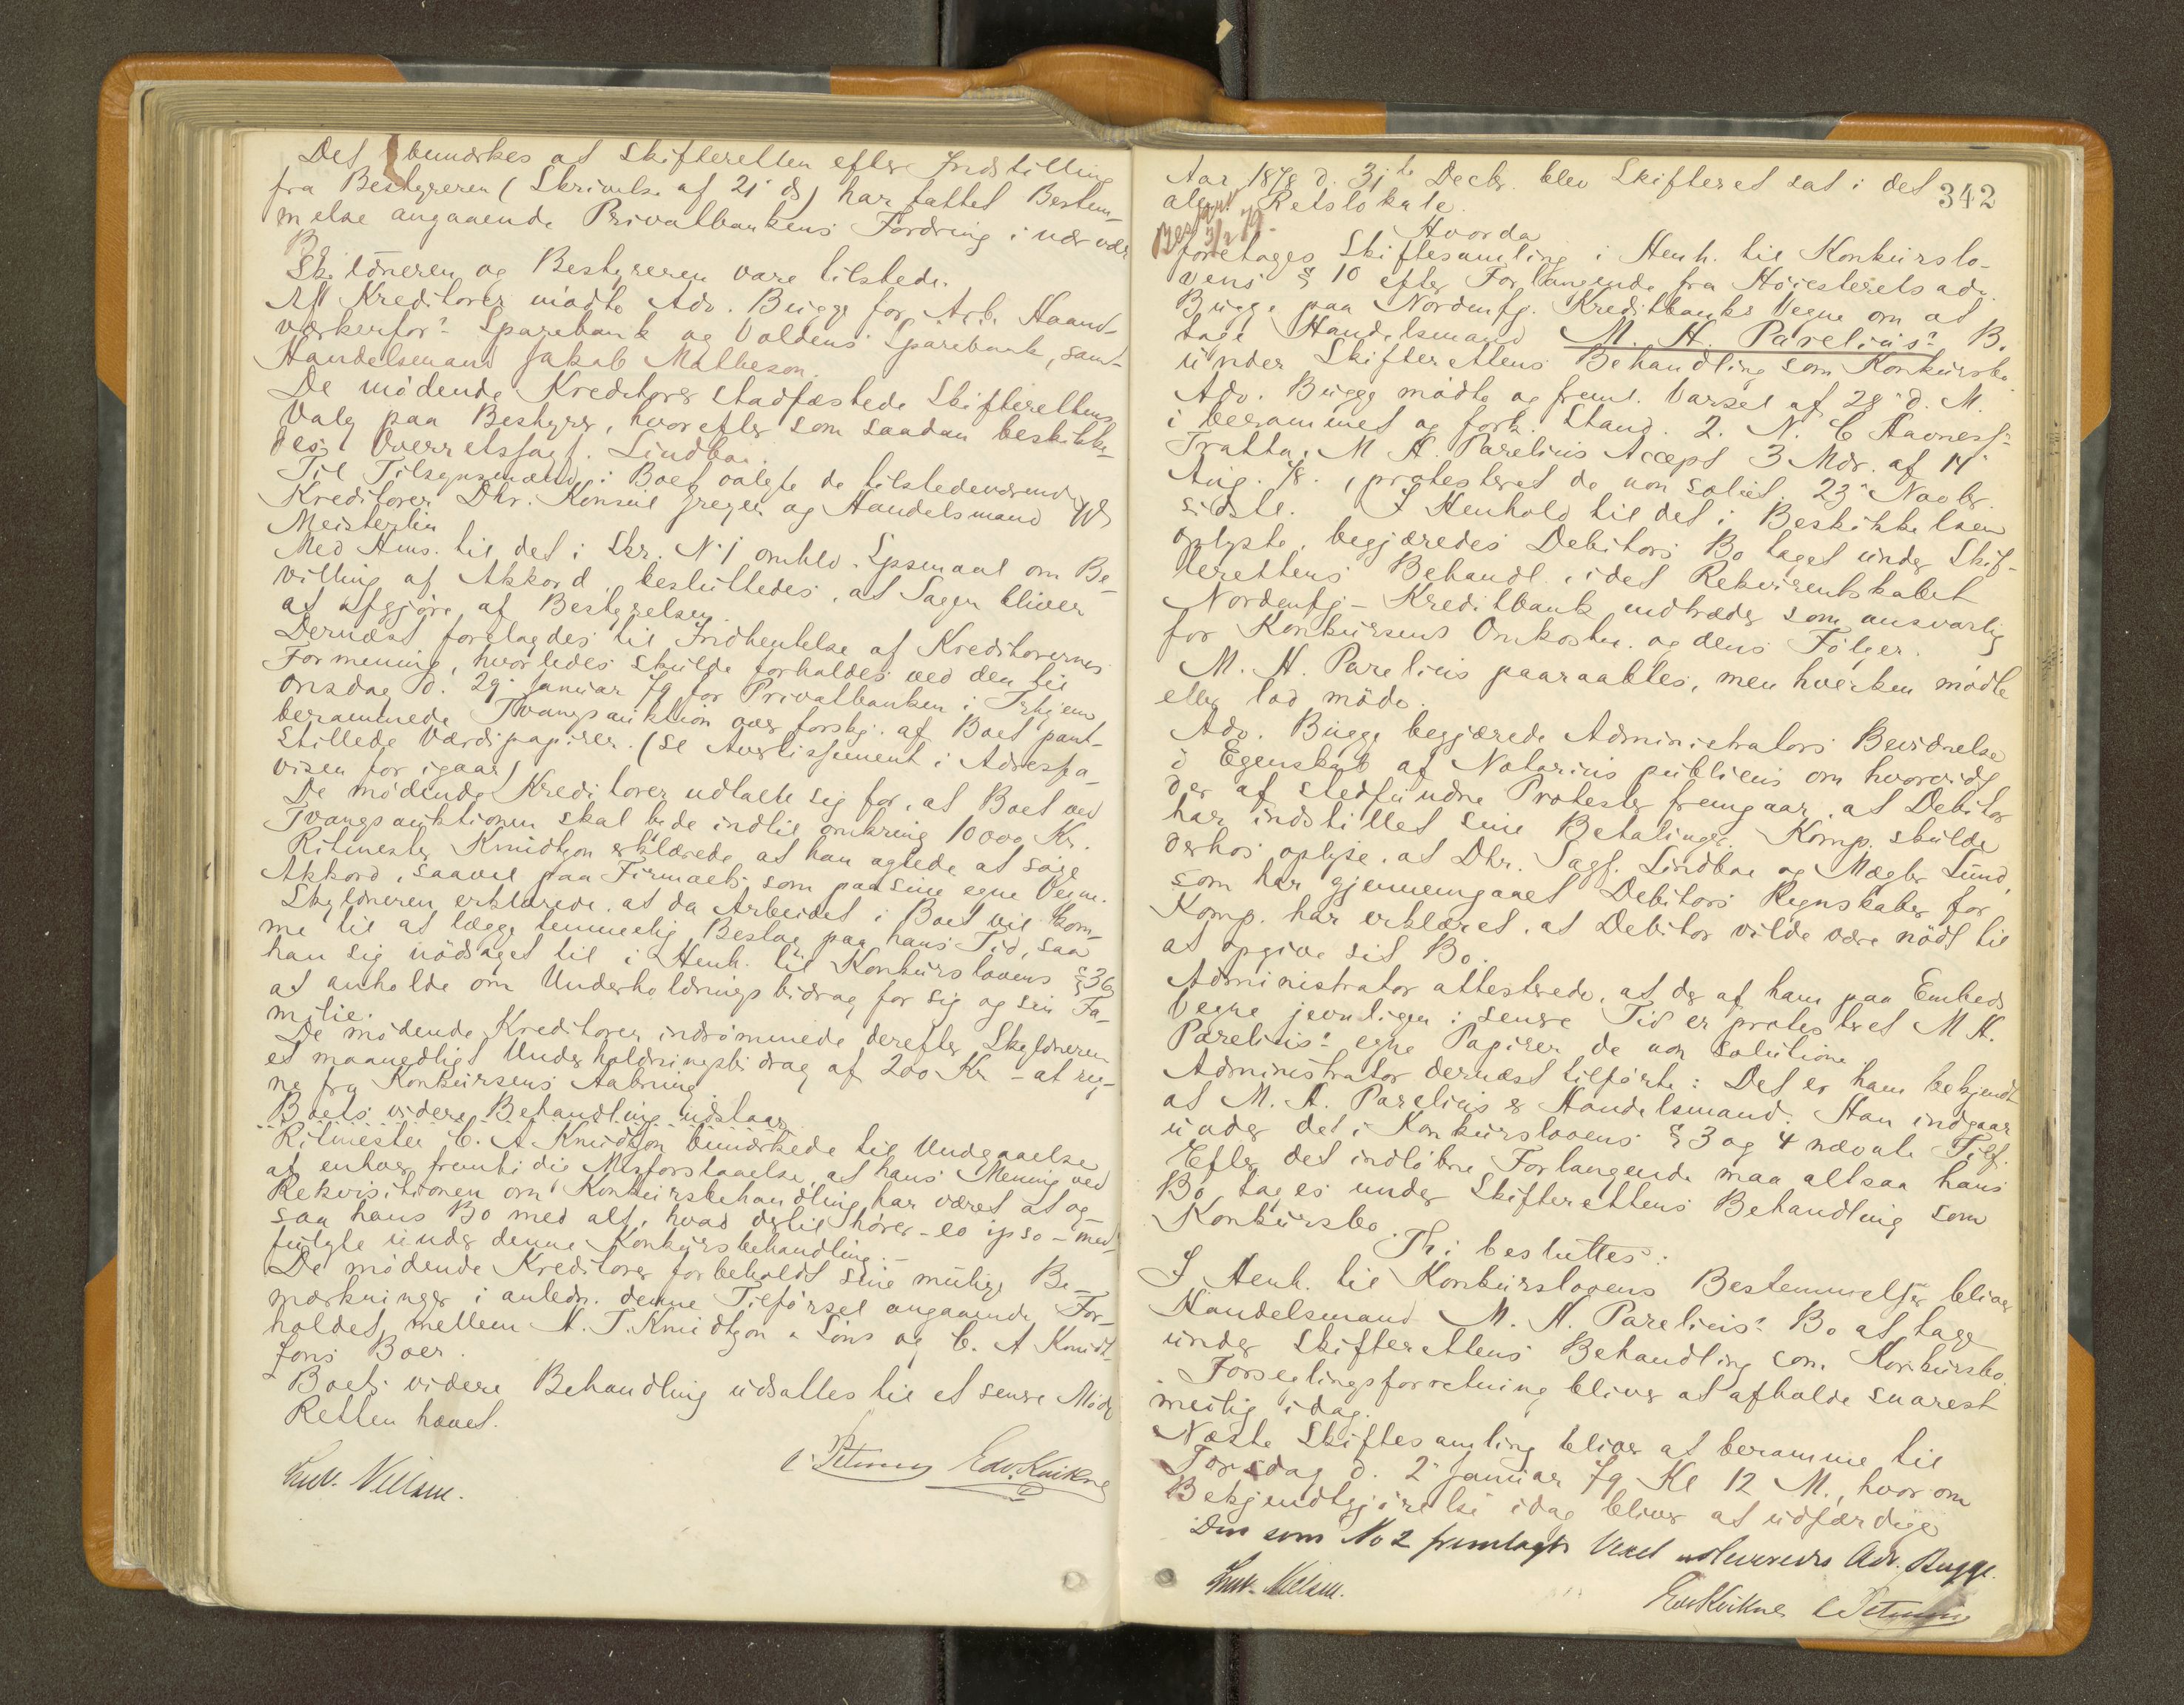 Det bemærkes at Skifteretten efter Indstilling
fra Bestyreren (Skrivelse af 21 ds) har fattet Bestem-
melse angaaende Privatbankens Fordring i nærvær
Bo
Skyldneren og Bestyreren vare tilstede.
Af Kreditorer mødte Adv. Bugge for Arb. Haand-
værkerfor: Sparebank og Voldens Sparebank, samt
Handelsmand Jakob Matheson.
De mødende Kreditorer stadfæstede Skifterettens
Valg paa Bestyrer, hvorefter som saadan beskikke-
des Overretssagf. Lindboe.
Til Tilsynsmænd i Boet valgte de tilstedeværende
Kreditorer Dhr. Konsul Jregen og Handelsmand W
Meisterlin
Med Hens. til det i Skr. N. 1 omhlv. Spsmaal om Be-
villing af Akkord, besluttedes, at Sagen bliver
at afgjøre af Bestyrelsen.
Dernæst forelagdes til Indhentelse af Kreditorernes
Formening, hvorledes skulde forholdes ved den til
Onsdag d. 29 Januar 79 for Privatbanken i Trhjem
berammede Tvangsauktion over forskj. af Boet pant-
stillede Værdipapirer. (Se Avertissement i Adressa-
visen for igaar)
De mødende Kreditorer udtalte sig for, at Boet ved
Tvangsauktionen skal byde indtil omkring 10000 Kr.
Ritmester Knudtzon erklærede at han agtede at søge
Akkord, saavel paa Firmaets som paa sine egne Vegne.
Skyldneren erklærede, at da Arbeidet i Boet vil kom-
me til at lægge temmelig Beslag paa hans Tid, saa
han sig nødsaget til i Henh. til Konkurslovens § 36
at anholde om Underholdningsbidrag for sig og sin Fa-
milie.
De mødende Kreditorer indrømmede derefter Skyldneren
et maanedligt Underholdningsbidrag af 200 Kr - at reg-
ne fra Konkursens Aabning.
Boets videre Behandling udstaar
Ritmester C. A. Knudtzon bemærkede til Undgaaelse
af enhver fremtidig Misforstaaelse, at hans Mening ved
Rekvisitionen om Konkursbehandling har været at og-
saa hans Bo med alt, hvad dertil hører - eo ipso - med-
fulgte under denne Konkursbehandling.
De mødende Kreditorer forbeholdt sine mulige Be-
mærkninger i anledn. denne Tilførsel angaaende For-
holdet mellem N. T. Knudtzon & Søns og C. A Knudt-
zons Boer.
Boets videre Behandling udsattes til et senere Møde
Retten hævet.
Ludv. Nielsen. C Petersen Edv. Kvikne
342
Aar 1878 d. 31te Decbr. blev Skifteret sat i det
alm. Retslokale.
Hvorda
foretages Skiftesamling i Henh. til Konkurslo-
vens § 10 efter Forlangende fra Høiesteretsadv.
Bugge paa Nordenfj. Kreditbanks Vegne om at
tage Handelsmand M. H. Parelius: Bo
under Skifterettens Behandling som Konkursbo.
Adv. Bugge mødte og freml. Varsel af 28 d. M.
i berammet og fork. Stand. 2. N. C Havness:
Tratta, M H. Parelius Accept 3 Mdr. af 14
Aug. 78, protesteret de non solut. 23 Novbr.
sidstl. I Henhold til det i Beskikkelsen
oplyste, begjæredes Debitors Bo taget under Skif-
terettens Behandl. idet Rekvirentskabet
Nordenfj. Kreditbank indtræder som ansvarlig
for Konkursens Omkostn. og dens Følger.
M. H. Parelius paaraabtes, men hverken mødte
eller lod møde.
Adv. Bugge begjærede Administrators Bevidnelse
i Egenskab af Notarius publicus om hvorvidt
der af stedfundne Protester fremgaar, at Debitor
har indstillet sine Betalinger. Komp. skulde
derhos oplyse, at Dhr. Sagf. Lindboe og Mægler Lund,
som har gjennemgaaet Debitors Regnskaber for
Komp. har erklæret, at Debitor vilde være nødt til
at opgive sit Bo.
Administrator attesterede, at der af ham paa Embeds
Vegne jevnligen i senere Tid er protesteret M H.
Parelius: egne Papirer de non solutione.
Administrator dernæst tilførte: Det er ham bekjendt
at M. H. Parelius er Handelsmand. Han indgaar
under det i Konkurslovens § 3 og 4 nævnte Tilf.
Efter det indløbne Forlangende maa altsaa hans
Bo tages under Skifterettens Behandling som
Konkursbo.
Thi besluttes:
I Henh. til Konkurslovens Bestemmelser bliver
Handelsmand M. H. Parelius: Bo at tage
under Skifterettens Behandling som Konkursbo.
Forseglingsforretning bliver at afholde snarest
mulig idag.
Næste Skiftesamling bliver at beramme til
Torsdag d. 2 Januar 79 Kl 12 M., hvorom
Bekjendtgjørelse idag bliver at udfærdige
Den som No 2 fremlagte Vexel udleveredes Adv. Bugge.
Ludv. Nielsen. Edv Kvikne C Petersen